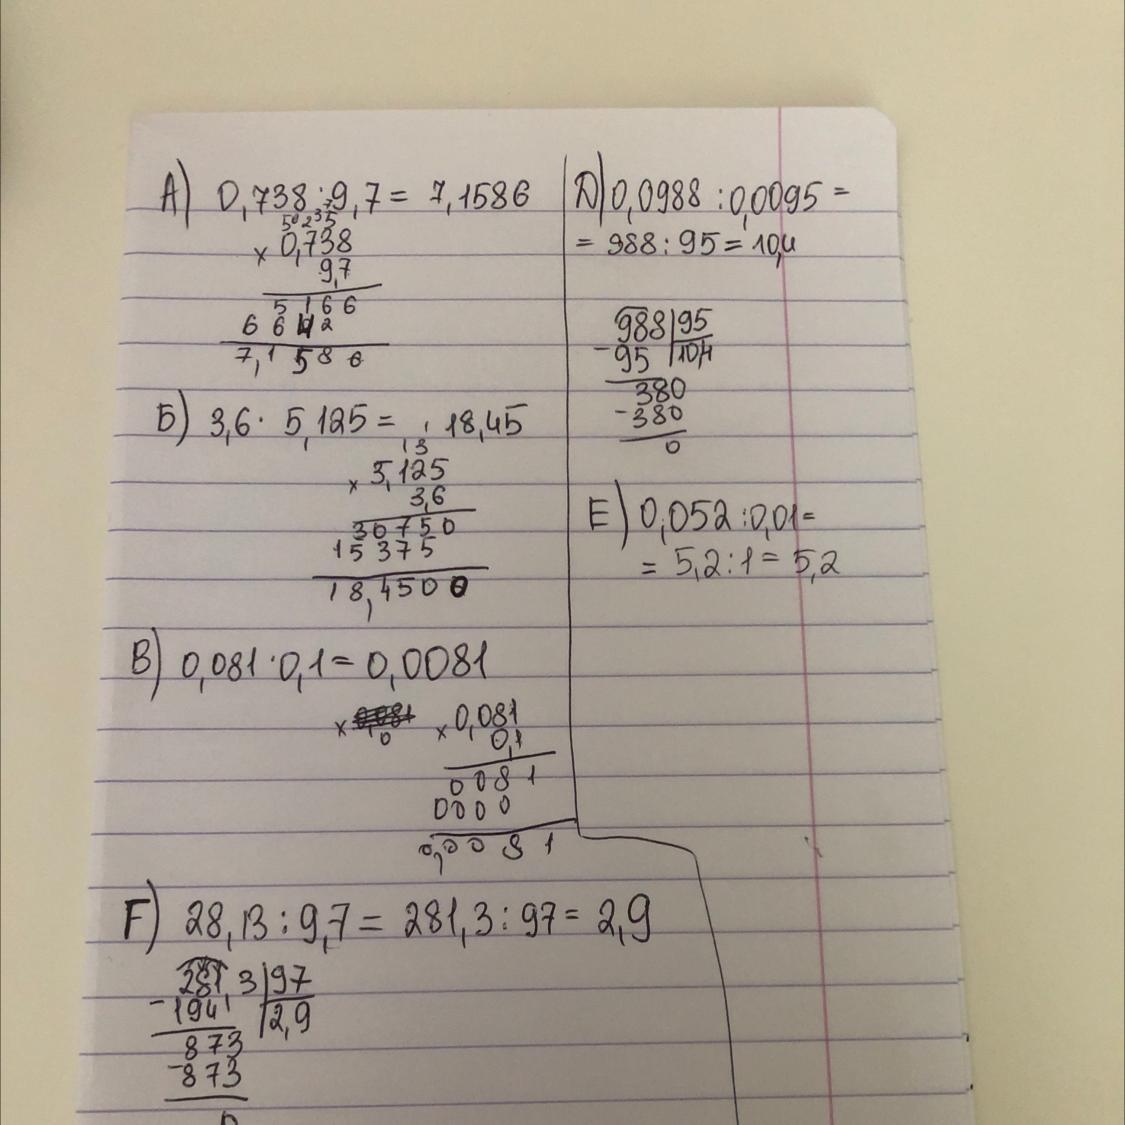 А) 0,738 : 9,7 = 7,1586
7
5 0 2 3 5
× 0,738
9,7
5 1 6 6
6 6 4 2
7,1 5 8 6
Б) 3,6 · 5,125 = 18,45
1
1 3
× 5,125
3,6
30750
15375
18,4500
В) 0,081 · 0,1 = 0,0081
× 0,081
0,1
0081
0000
0,0081
F) 28,13 : 9,7 = 281,3 : 97 = 2,9
281,3 | 97
- 194 | 2,9
873
- 873
0
Д) 0,0988 : 0,0095 =
= 988 : 95 = 10,4
988 | 95
- 95 | 10,4
380
- 380
0
Е) 0,052 : 0,01 =
= 5,2 : 1 = 5,2